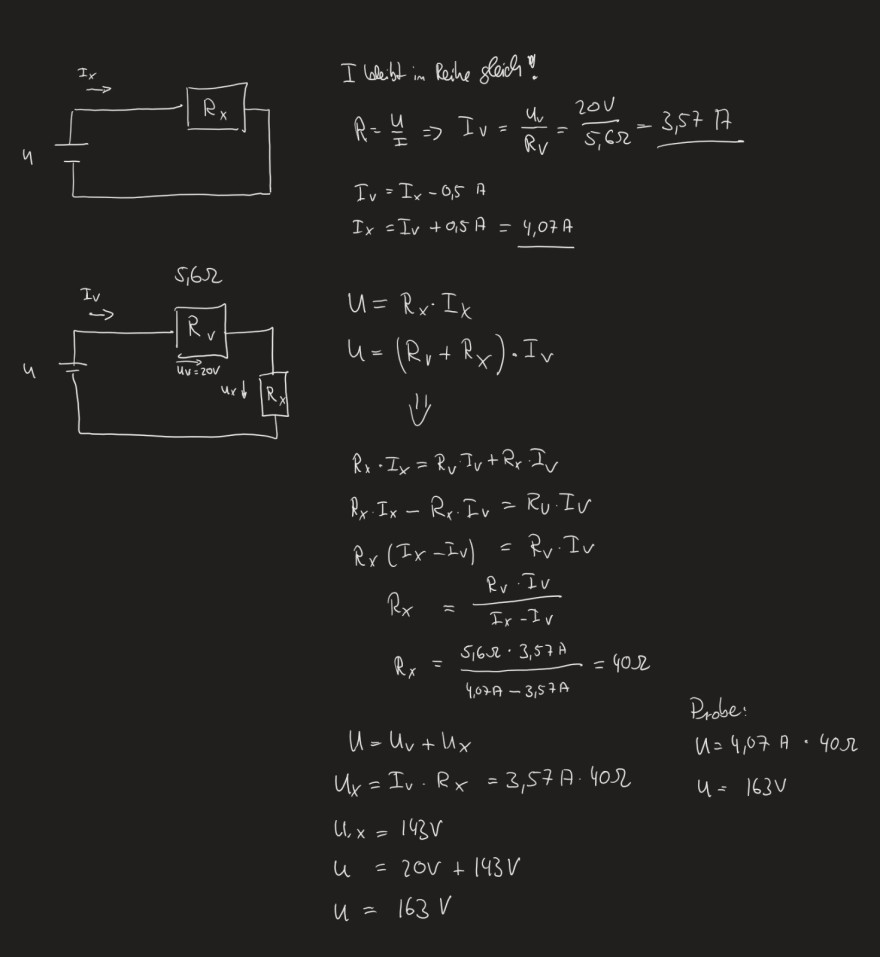 I_x
R_x
U
I bleibt in Reihe gleich!
R = U/I ⇒ I_v = U_v/R_v = 20V/5,6Ω = 3,57 A
I_v = I_x - 0,5 A
I_x = I_v + 0,5 A = 4,07 A
5,6Ω
I_v
R_v
U_v = 20V
U
U_x ↓
R_x
U = R_x · I_x
U = (R_v + R_x) · I_v
⇓
R_x · I_x = R_v · I_v + R_x · I_v
R_x · I_x - R_x · I_v = R_v · I_v
R_x (I_x - I_v) = R_v · I_v
R_x = R_v · I_v / I_x - I_v
R_x = 5,6Ω · 3,57A / 4,07A - 3,57A = 40Ω
U = U_v + U_x
U_x = I_v · R_x = 3,57A · 40Ω
U_x = 143V
U = 20V + 143V
U = 163 V
Probe:
U = 4,07 A · 40Ω
U = 163V